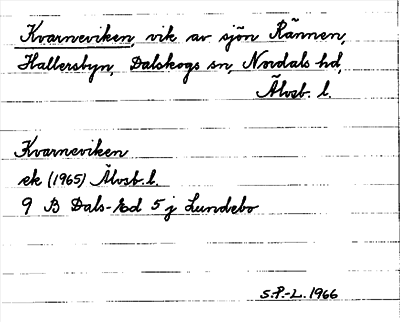 Kvarneviken, vik av sjön Rännen,
Hallersbyn, Dalskogs sn, Nordals hd,
Älvsb. l.
Kvarneviken
ek (1965) Älvsb. l.
9 B Dals-Ed 5 j Lundebo
S.P.-L. 1966